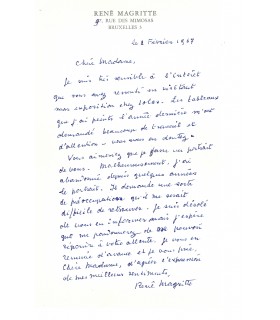 RENÉ MAGRITTE
97, RUE DES MIMOSAS
BRUXELLES 3
le 2 Février 1967
Chère Madame,
Je suis très sensible à l'intérêt
que vous avez ressenti en visitant
mon exposition chez Iolas. Les tableaux
que j'ai peints l'année dernière m'ont
demandé beaucoup de travail et
d'attention - vous vous en doutez -
Vous aimeriez que je fasse un portrait
de vous. Malheureusement, j'ai
abandonné depuis quelques années
le portrait. Il demande une sorte
de préoccupation qu'il me serait
difficile de retrouver. Je suis désolé
de vous en informer mais j'espère
que me pardonnerez de ne pouvoir
répondre à votre attente. Je vous en
remercie d'avance et je vous prie,
Chère Madame, d'agréer l'expression
de mes meilleurs sentiments.
René Magritte